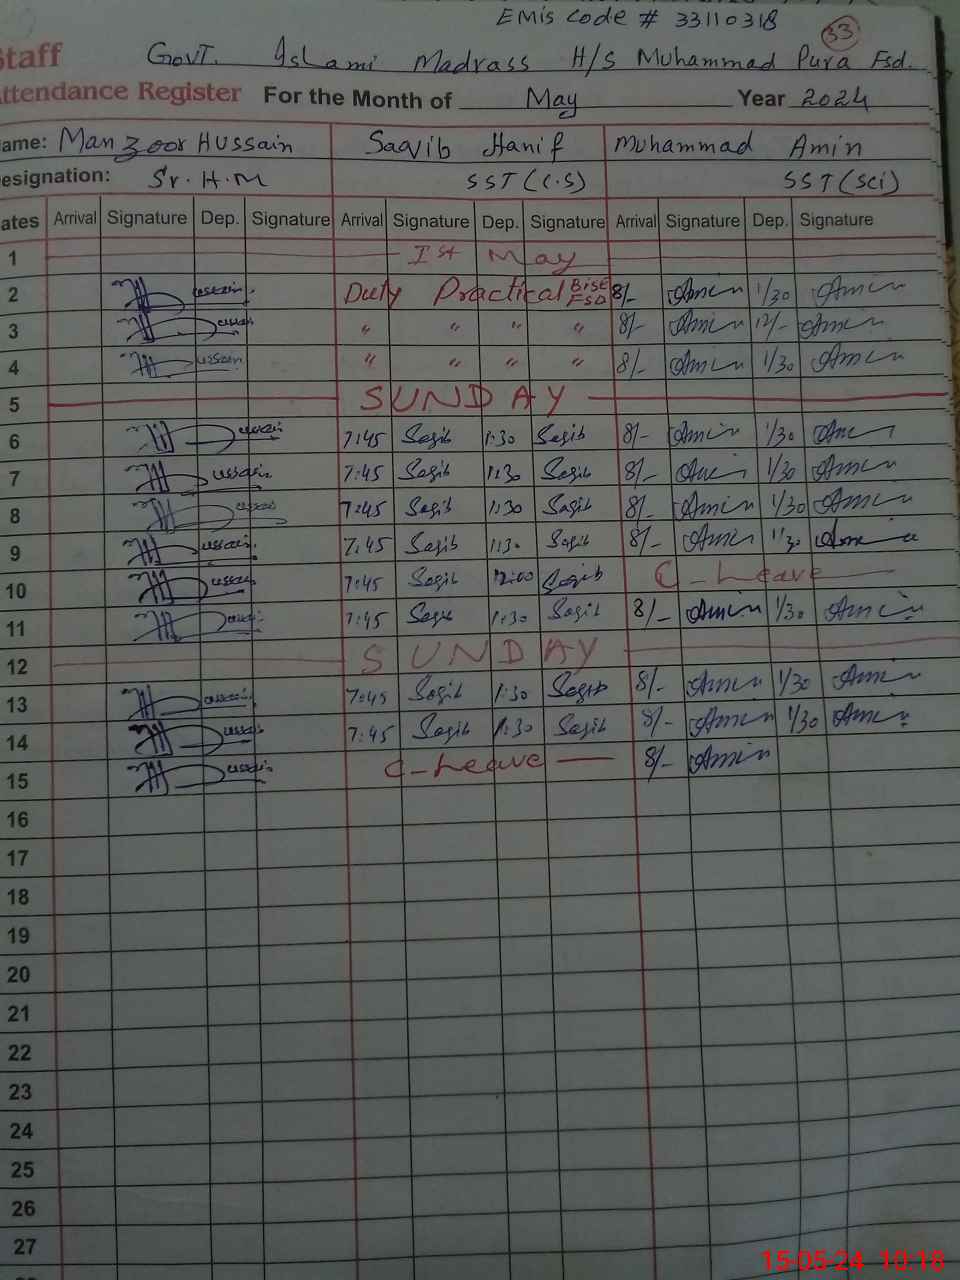 EMis Code # 33110318
33
Staff Govt. Islami Madrass H/S Muhammad Pura Fsd.
Attendance Register For the Month of May Year 2024
ame: Manzoor Hussain Saqib Hanif Muhammad Amin
esignation: Sr. H.M SST (C.S) SST (Sci)
ates Arrival Signature Dep. Signature Arrival Signature Dep. Signature Arrival Signature Dep. Signature
1 Ist May
2 Hussain Duty Practical BISE FSD 8/- Amin 1/30 Amin
3 Hussain " " " " 8/- Amin 12/- Amin
4 Hussain " " " " 8/- Amin 1/30 Amin
5 SUNDAY
6 Hussain 7:45 Saqib 1:30 Saqib 8/- Amin 1/30 Amin
7 Hussain 7:45 Saqib 1:30 Saqib 8/- Amin 1/30 Amin
8 Hussain 7:45 Saqib 1:30 Saqib 8/- Amin 1/30 Amin
9 Hussain 7:45 Saqib 1:30 Saqib 8/- Amin 1/30 Amin
10 Hussain 7:45 Saqib 12:00 Saqib C-Leave
11 Hussain 7:45 Saqib 1:30 Saqib 8/- Amin 1/30 Amin
12 SUNDAY
13 Hussain 7:45 Saqib 1:30 Saqib 8/- Amin 1/30 Amin
14 Hussain 7:45 Saqib 1:30 Saqib 8/- Amin 1/30 Amin
15 Hussain C-Leave 8/- Amin
16
17
18
19
20
21
22
23
24
25
26
27
15-05-24 10:18